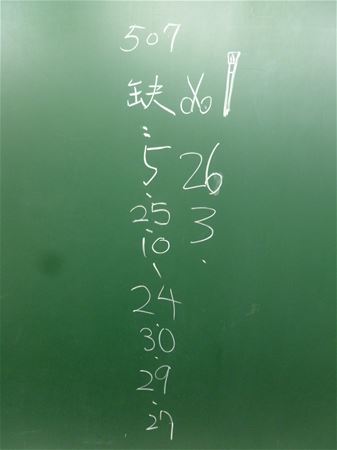 507
缺:
5、
25、
10、
24、
30、
29、
27、
26、
3.